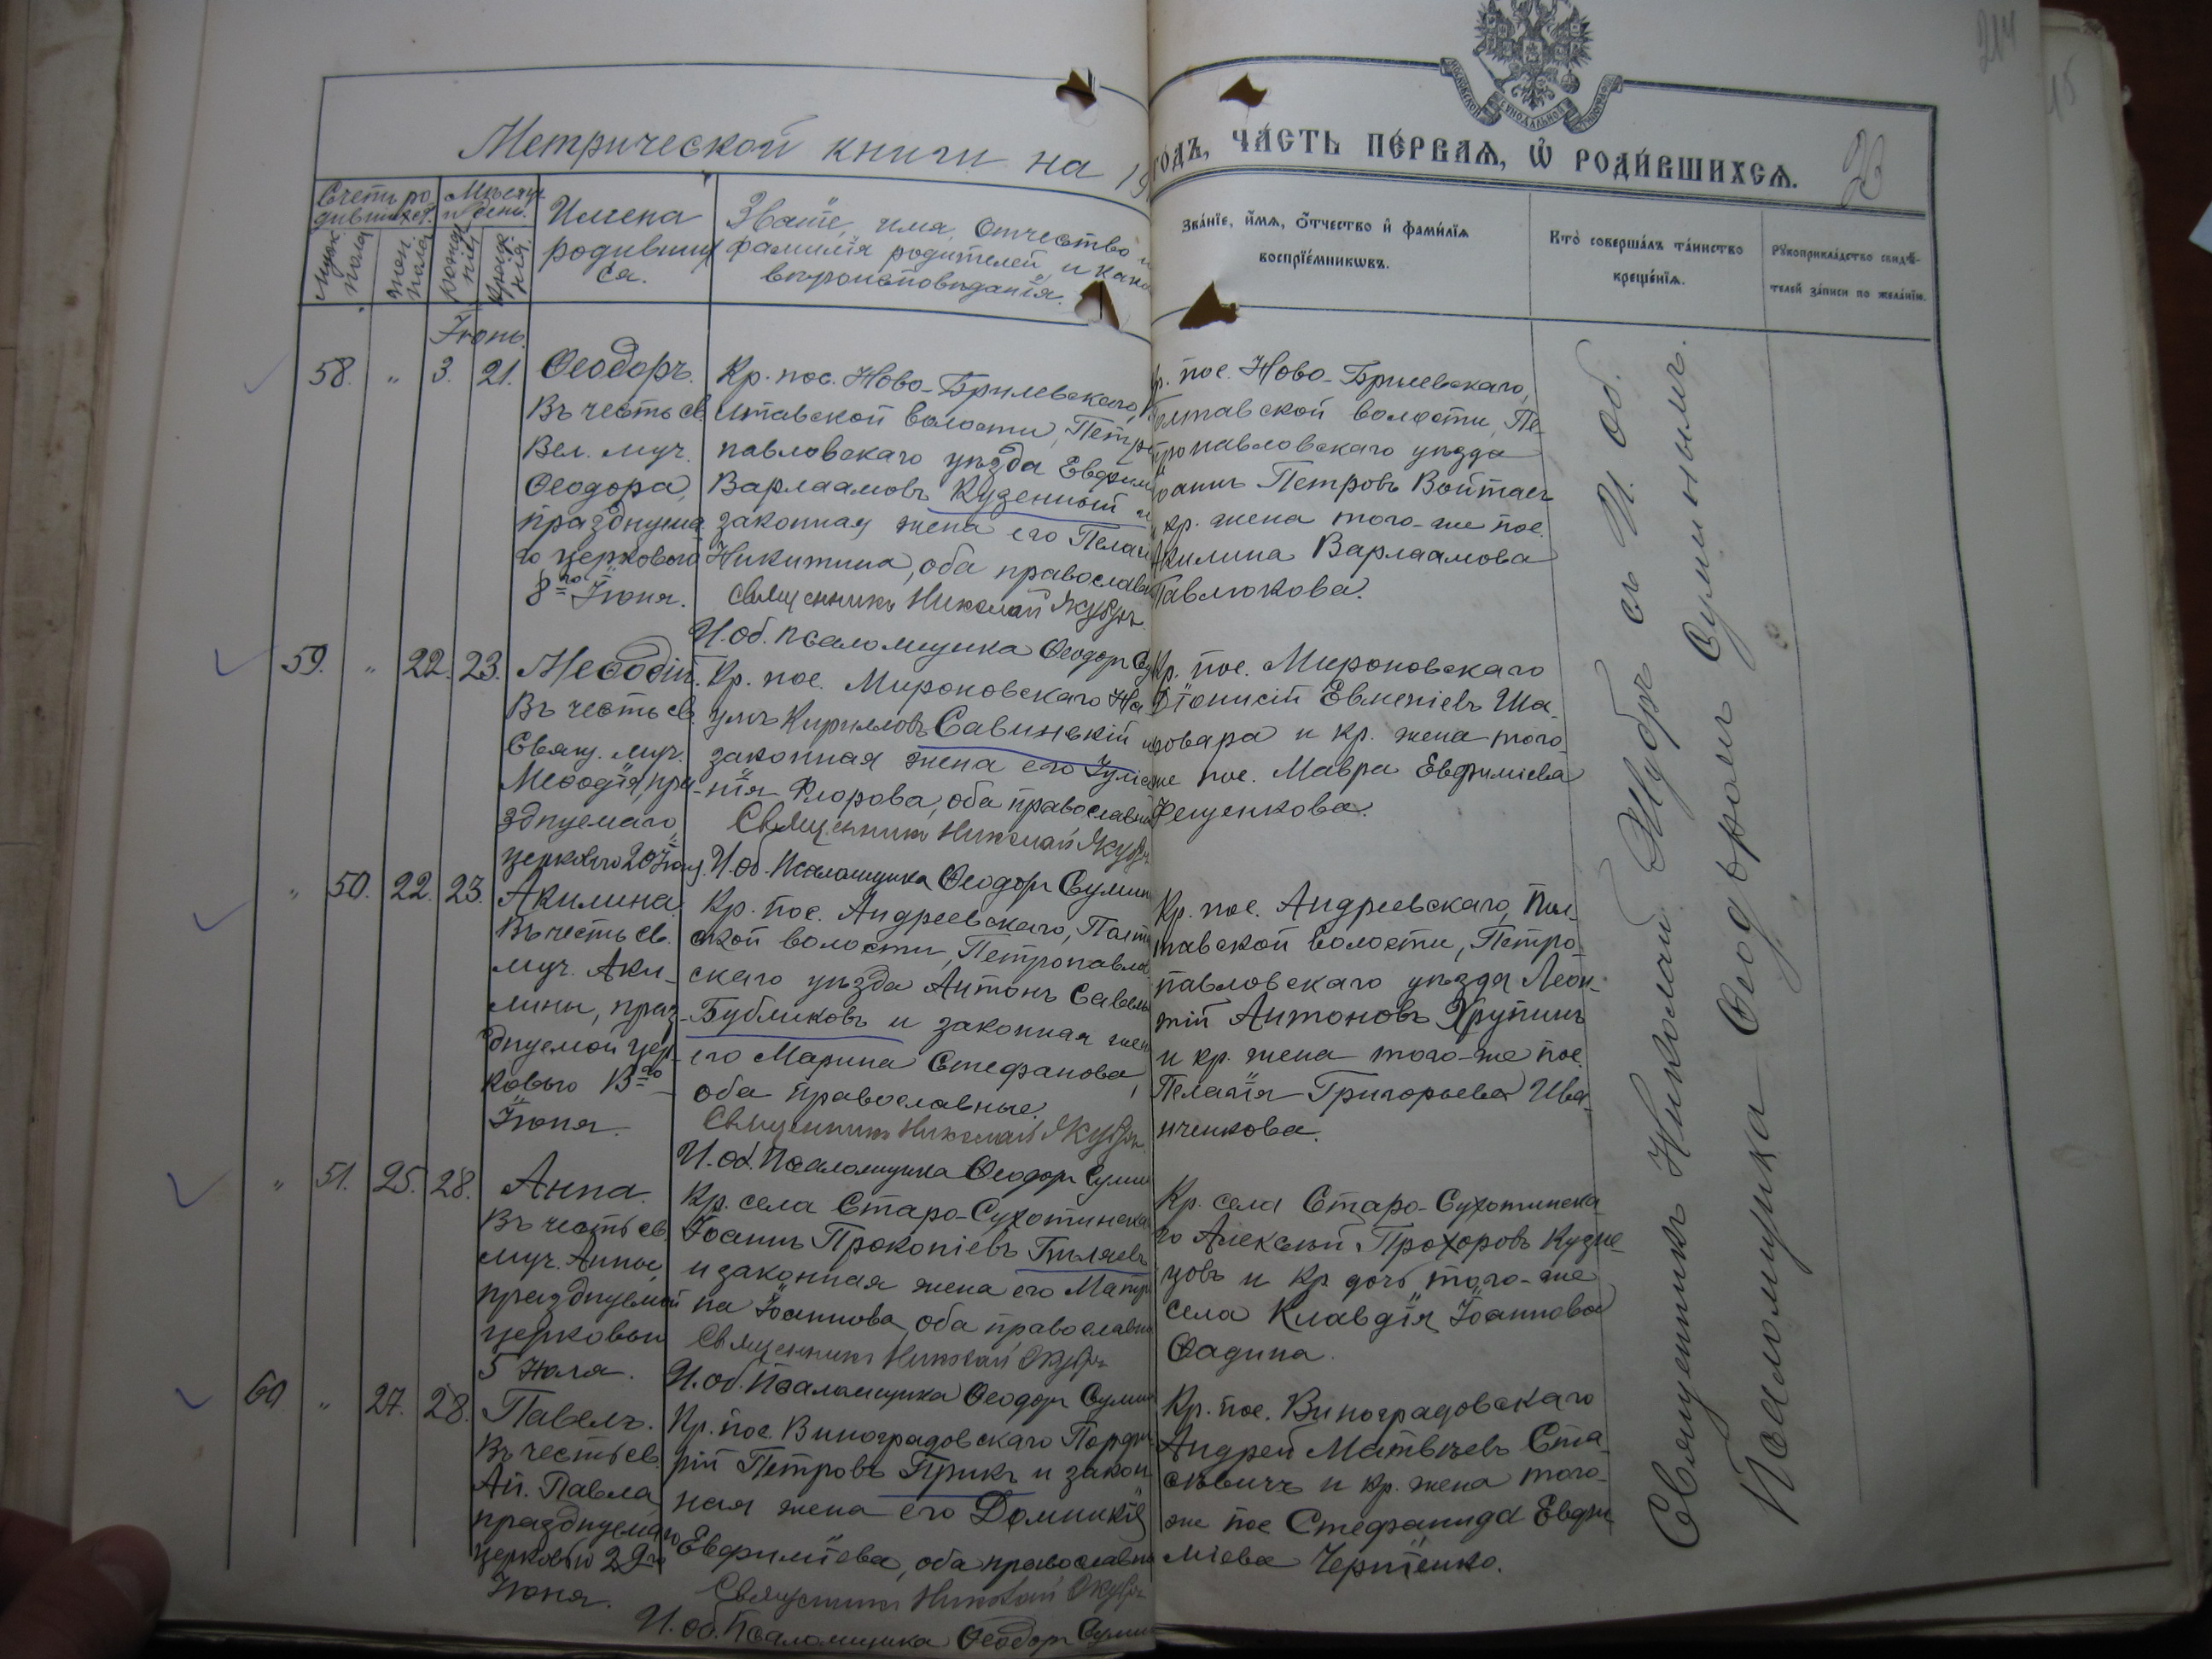 Метрической книги на 19
годъ, часть первая, ѡ родившихся.
214
15
Счетъ ро
дившихся.
Мѣсяцъ
и день.
Имена
родивших
ся.
Званіе, имя, отчество и
фамилія родителей, и како
вѣроисповѣданія.
Муж.
пола
Жен.
пола
рожде
нія
креще
нія
Званіе, имя, отчество и фамилія
воспріемниковъ.
Кто совершалъ таинство
крещенія.
Рукоприкладство свидѣ-
телей записи по желанію.
Іюнь.
58. " 3. 21.
Ѳеодоръ.
Въ честь св.
Вел. муч.
Ѳеодора,
празднуема
го церковью
8го Іюня.
Кр. пос. Ново-Брилевскаго,
лтавской волости, Петро
павловскаго уѣзда Евфим
Варлаамовъ Кузенный и
законная жена его Пелагі
Никитина, оба православн
Священникъ Николай Якубъ
И. об. псаломщика Ѳеодоръ Су
Кр. пос. Ново-Брилевскаго,
Полтавской волости, Пе-
тропавловскаго уѣзда
Іоаннъ Петровъ Войтасъ
и кр. жена того-же пос.
Акилина Варлаамова
Павлюкова.
59. " 22. 23.
Меѳодій.
Въ честь св.
Свящ. муч.
Меѳодія, пра-
зднуемаго
церковью 20 Іюня.
Кр. пос. Мироновскаго На
умъ Кирилловъ Савинскій и
законная жена его Іуліа
нія Флорова, оба православны
Священникъ Николай Якубъ
И. об. Псаломщика Ѳеодоръ Сумин
Кр. пос. Мироновскаго
Діонисій Евменіевъ Ша-
повара и кр. жена того-
же пос. Мавра Евфиміева
Фещенкова.
" 50. 22. 23.
Акилина.
Въ честь св.
муч. Аки-
лины, праз-
днуемой цер-
ковью 13го
Іюня.
Кр. пос. Андреевскаго, Полта
ской волости, Петропавлов
скаго уѣзда Антонъ Савель
Бубликовъ и законная жен
его Марина Стефанова,
оба православные.
Священникъ Николай Якубъ
И. об. Псаломщика Ѳеодоръ Сумин
Кр. пос. Андреевскаго, Пол-
тавской волости, Петро-
павловскаго уѣзда Леон-
тій Антоновъ Хрупинъ
и кр. жена того-же пос.
Пелагія Григорьева Ива-
нченкова.
" 51. 25. 28.
Анна.
Въ честь св.
муч. Анны,
празднуемой
церковью
5 Іюля.
Кр. села Старо-Сухотинска
Іоаннъ Прокопіевъ Биляевъ
и законная жена его Матр
на Іоаннова, оба православн
Священникъ Николай Якубъ
И. об. Псаломщика Ѳеодоръ Сумин
Кр. села Старо-Сухотинска
го Алексѣй Прохоровъ Кузне-
цовъ и кр. дочь того-же
села Клавдія Іоаннова
Ѳадина.
60. " 27. 28.
Павелъ.
Въ честь св.
Ап. Павла,
празднуемаго
церковью 29го
Іюня.
Кр. пос. Виноградовскаго Порфи
рій Петровъ Прикъ и закон
ная жена его Домникія
Евфиміева, оба православн
Священникъ Николай Якубъ
И. об. Псаломщика Ѳеодоръ Сумин
Кр. пос. Виноградовскаго
Андрей Матвѣевъ Ста-
сѣвичъ и кр. жена того-
же пос Стефанида Евфи-
міева Черпіенко.
Священникъ Николай Якубъ съ И. об.
Псаломщика Ѳеодоромъ Суминымъ.